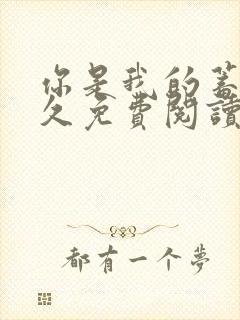 你是我的蓄
久免費閱讀
都有一个夢